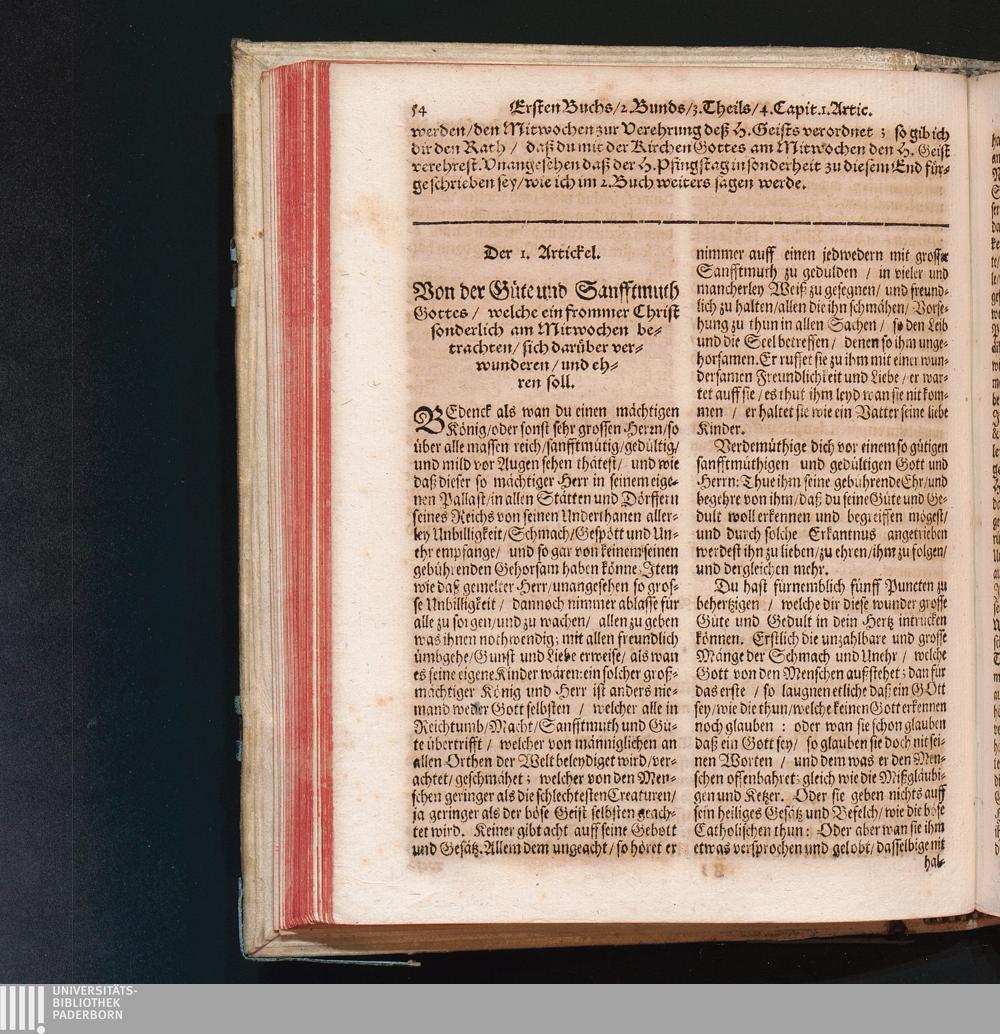 54 Ersten Buchs/2. Bunds/3. Theils/4. Capit. 1. Artic.
werden/den Mitwochen zur Verehrung deß H. Geists verordnet; so gib ich
dir den Rath / daß du mit der Kirchen Gottes am Mitwochen den H. Geist
verehrest. Vnangesehen daß der H. Pfingstag insonderheit zu diesem End für-
geschrieben sey/wie ich im 2. Buch weiters sagen werde.
Der 1. Artickel.
Von der Güte und Sanfftmuth
Gottes / welche ein frommer Christ
sonderlich am Mitwochen be-
trachten/sich darüber ver-
wunderen/und eh-
ren soll.
BEdenck als wan du einen mächtigen
König/oder sonst sehr grossen Herrn/so
über alle massen reich/sanfftmütig/gedültig/
und mild vor Augen sehen thätest/ und wie
daß dieser so mächtiger Herr in seinem eige-
nen Pallast/in allen Stätten und Dörffern
seines Reichs von seinen Underthanen aller-
ley Unbilligkeit/Schmach/Gespött und Un-
ehr empfange/ und so gar von keinem seinen
gebührenden Gehorsam haben könne. Item
wie daß gemelter Herr/unangesehen so gros-
se Unbilligkeit / dannoch nimmer ablasse für
alle zu sorgen/und zu wachen/ allen zu geben
was ihnen nothwendig; mit allen freundlich
ümbgehe/Gunst und Liebe erweise/ als wan
es seine eigene Kinder wären: ein solcher groß-
mächtiger König und Herr ist anders nie-
mand weder Gott selbsten / welcher alle in
Reichtumb/Macht/Sanfftmuth und Gü-
te übertrifft / welcher von männiglichen an
allen Orthen der Welt beleydiget wird/ver-
achtet/geschmähet; welcher von den Men-
schen geringer als die schlechtesten Creaturen/
ja geringer als der böse Geist selbsten geach-
tet wird. Keiner gibt acht auff seine Gebott
und Gesätz. Allem dem ungeacht/so höret er
nimmer auff einen jedwedern mit grosser
Sanfftmuth zu gedulden / in vieler und
mancherley Weiß zu gesegnen/ und freund-
lich zu halten/allen die ihn schmähen/ Vorse-
hung zu thun in allen Sachen/ so den Leib
und die Seel betreffen/ denen so ihm unge-
horsamen. Er ruffet sie zu ihm mit einer wun-
dersamen Freundlichkeit und Liebe/er war-
tet auff sie/es thut ihm leyd wan sie nit kom-
men / er haltet sie wie ein Vatter seine liebe
Kinder.
Verdemüthige dich vor einem so gütigen
sanfftmüthigen und gedültigen Gott und
Herrn: Thue ihm seine gebührende Ehr/und
begehre von ihm/daß du seine Güte und Ge-
dult woll erkennen und begreiffen mögest/
und durch solche Erkantnus angetrieben
werdest ihn zu lieben/zu ehren/ihm zu folgen/
und dergleichen mehr.
Du hast fürnemblich fünff Puncten zu
behertzigen / welche dir diese wunder grosse
Güte und Gedult in dein Hertz intrucken
können. Erstlich die unzahlbare und grosse
Mänge der Schmach und Unehr / welche
Gott von den Menschen außstehet; dan für
das erste / so laugnen etliche daß ein GOtt
sey/wie die thun/welche keinen Gott erkennen
noch glauben : oder wan sie schon glauben
daß ein Gott sey/ so glauben sie doch nit sei-
nen Worten / und dem was er den Men-
schen offenbahret; gleich wie die Mißgläubi-
gen und Ketzer. Oder sie geben nichts auff
sein heiliges Gesätz und Befelch/ wie die böse
Catholischen thun: Oder aber wan sie ihm
etwas versprochen und gelobt/dasselbige nit
hal-
UNIVERSITÄTS-
BIBLIOTHEK
PADERBORN